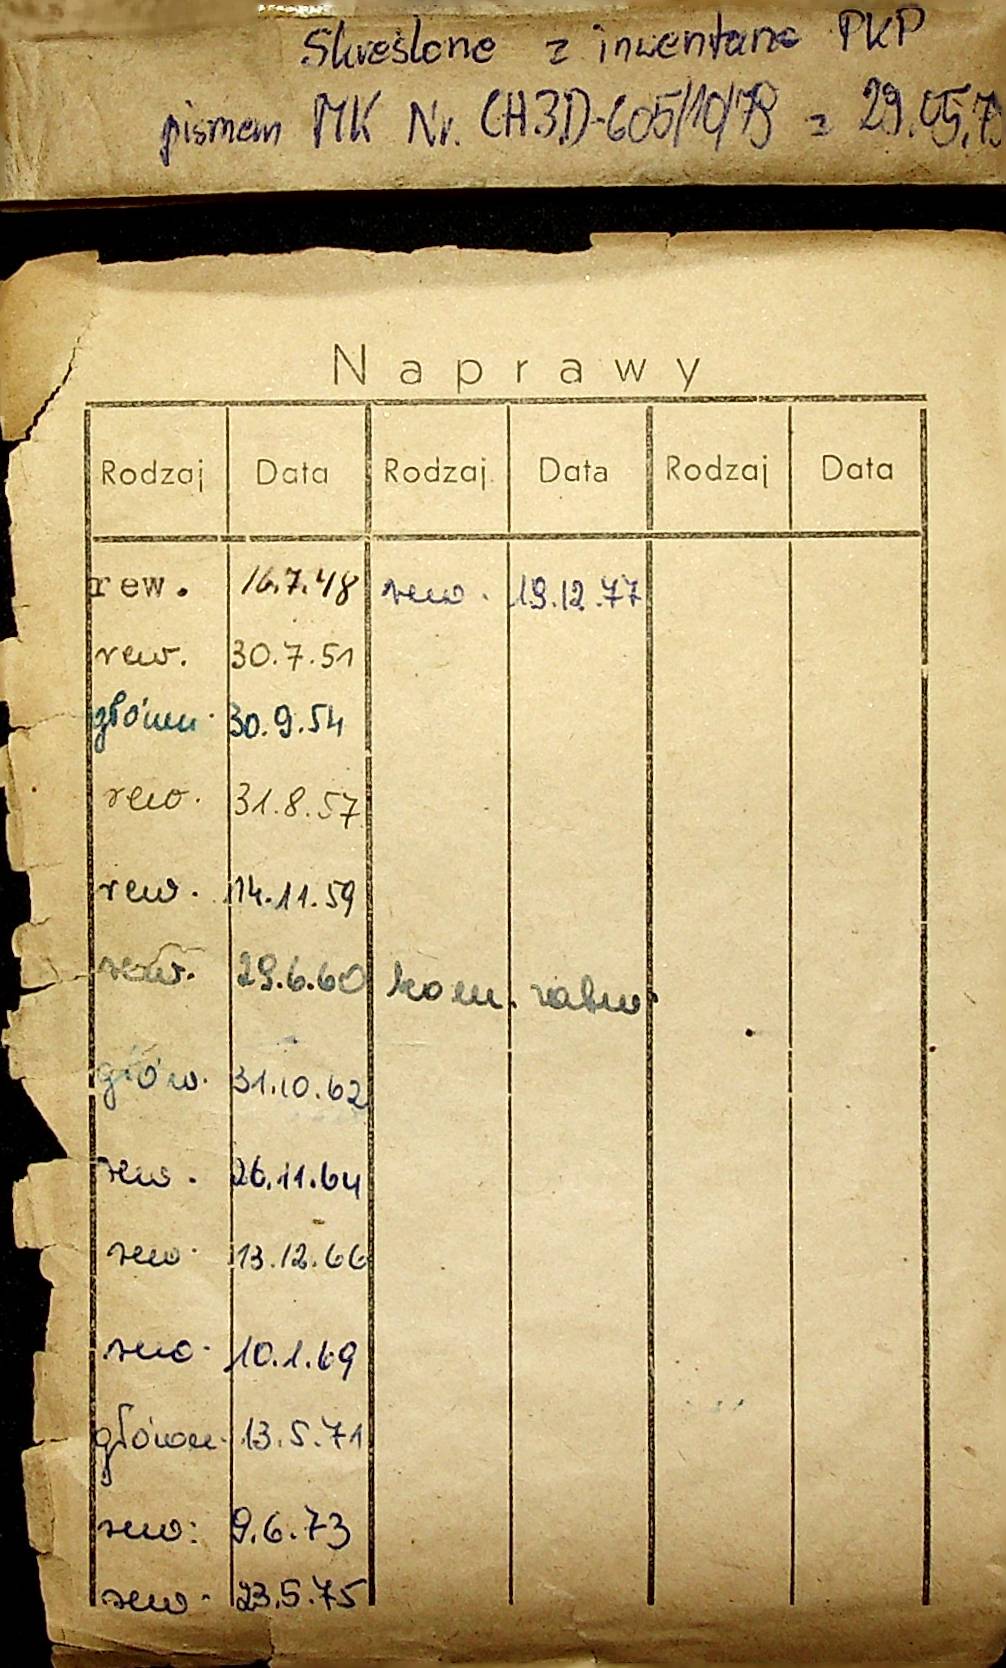 Skreślone z inwentarza PKP
pismem MK Nr. CH3D-605/10/78 z 29.05.7
Naprawy
Rodzaj Data Rodzaj Data Rodzaj Data
rew. 16.7.48 rew. 19.12.77
rew. 30.7.51
główn. 30.9.54
rew. 31.8.57
rew. 14.11.59
rew. 29.6.60 kom.
głów. 31.10.62
rew. 26.11.64
rew. 13.12.66
rew. 10.1.69
główn. 13.5.71
rew. 9.6.73
rew. 23.5.75